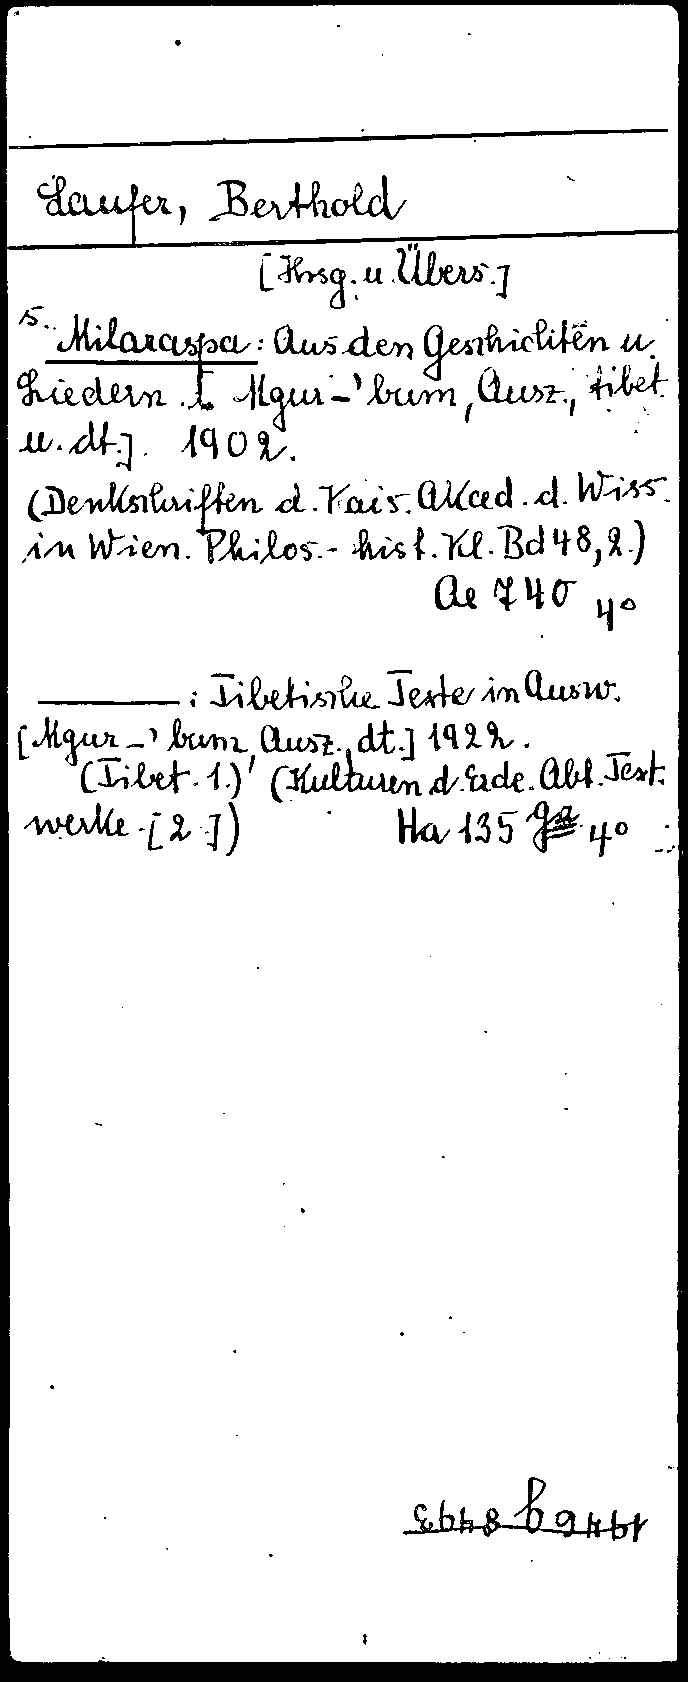 Laufer, Berthold
[Hrsg. u. Übers.]
s. Milaraspa: Aus den Geschichten u.
Liedern. [Mgur-'bum, Ausz., tibet.
u. dt.]. 1902.
(Denkschriften d. Kais. Akad. d. Wiss.
in Wien. Philos.-hist. Kl. Bd 48,2.)
Ae 740 4°
———: Tibetische Texte in Ausw.
[Mgur-'bum, Ausz., dt.] 1922.
(Tibet. 1.) (Kulturen d. Erde. Abt. Text-
werke. [2.])
Ha 135 4°